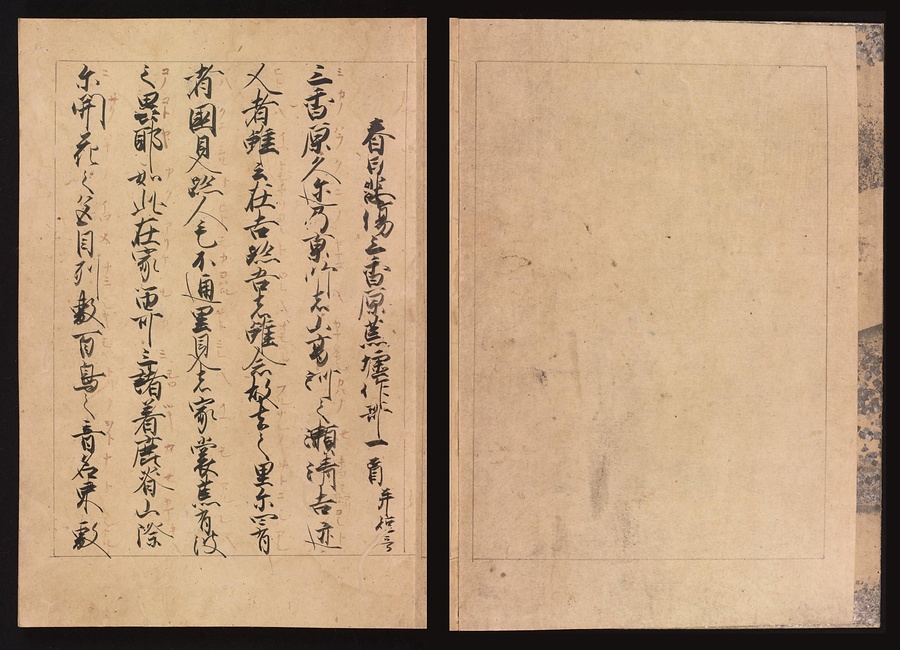 春日悲傷三香原荒墟作歌一首 并短歌
三香原久迩乃京師者山高河之瀬清吉迹
人者雖云在吉跡吾者雖念故去之里尓四有
者國見跡人毛不通里見者家裳荒有波
之異耶如此在家留可三諸着鹿脊山際
尓開花之色目列敷百鳥之音名束敷